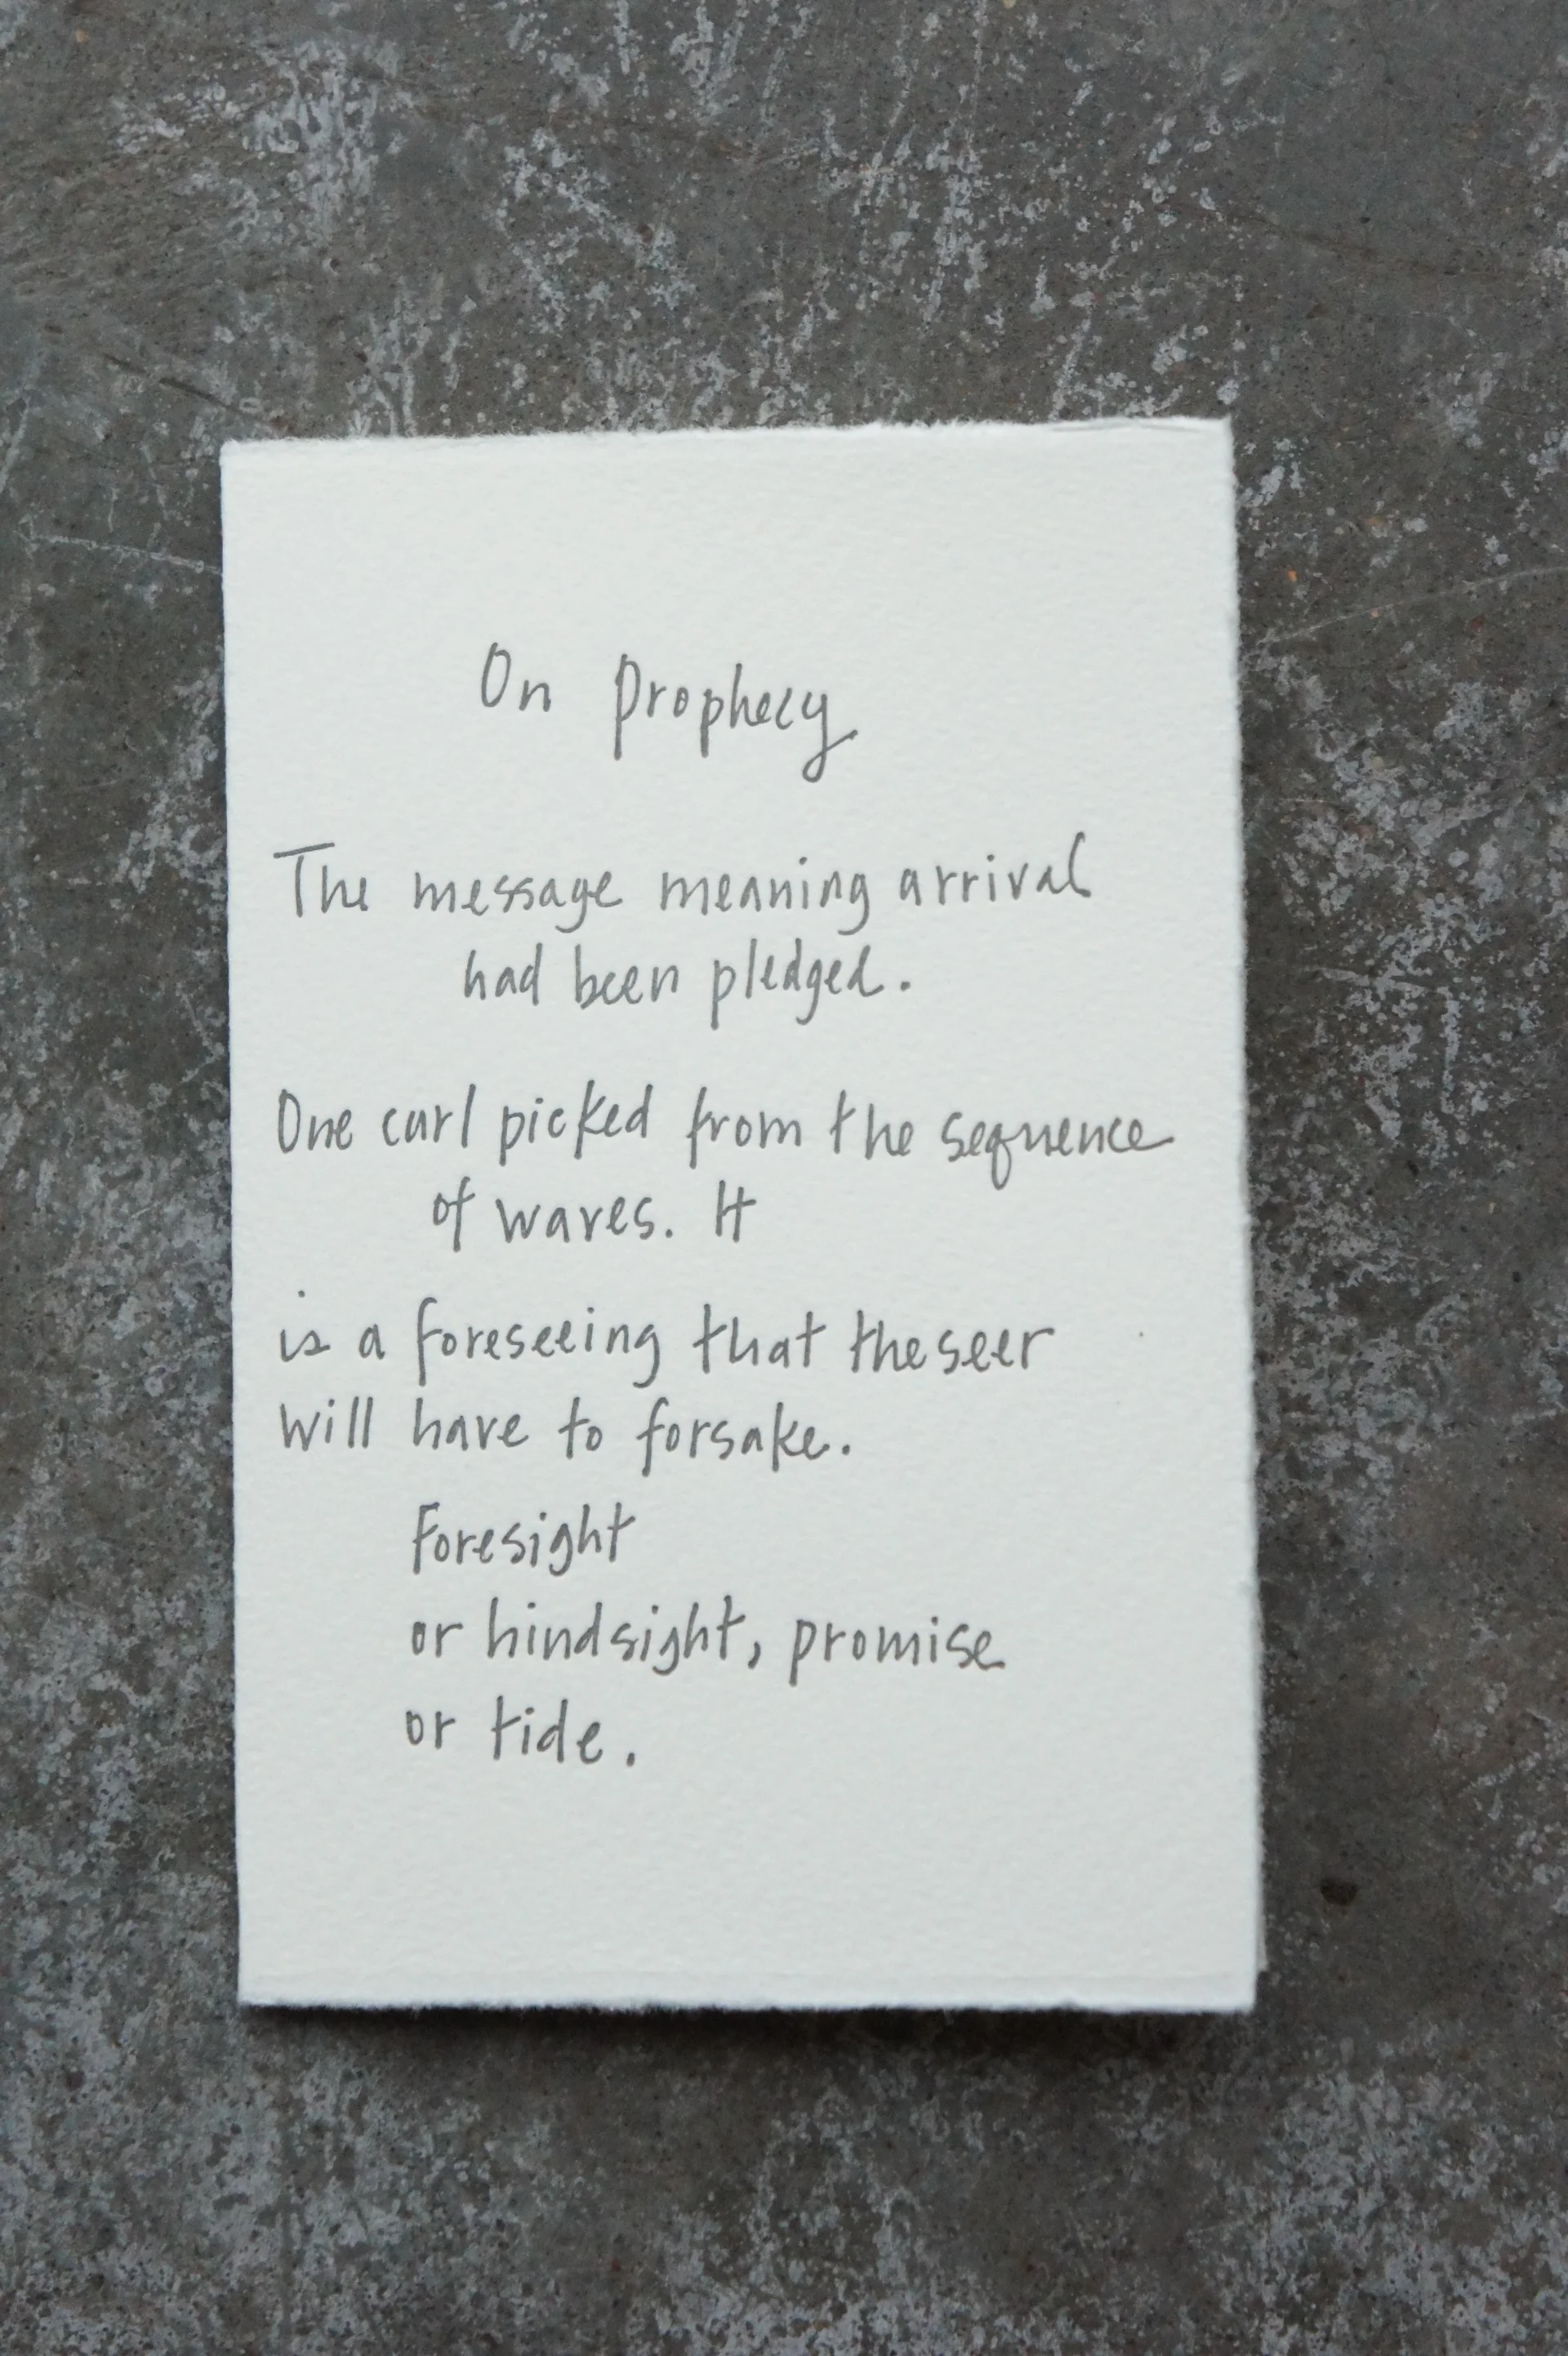 On Prophecy
The message meaning arrival
had been pledged.
One curl picked from the sequence
of waves. It
is a foreseeing that the seer
will have to forsake.
Foresight
or hindsight, promise
or tide.